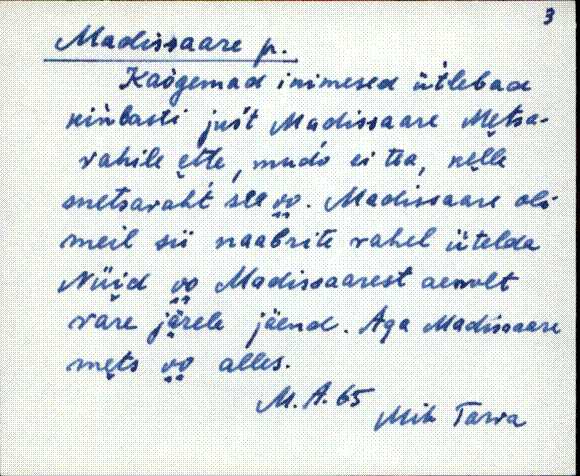 3
Madissaare p.
Kaogemad inimesed ütlebad
kinlasti just Madissaare Metsa-
vahile ette, mudo ei tea, kelle
metsavaht see oo. Madissaare oli
meil sii naabrite vahel ütelda
Nüid oo Madissaarest aenolt
vare järele jäend. Aga Madissaare
mets oo alles.
M. A. 65
Mih Tarva